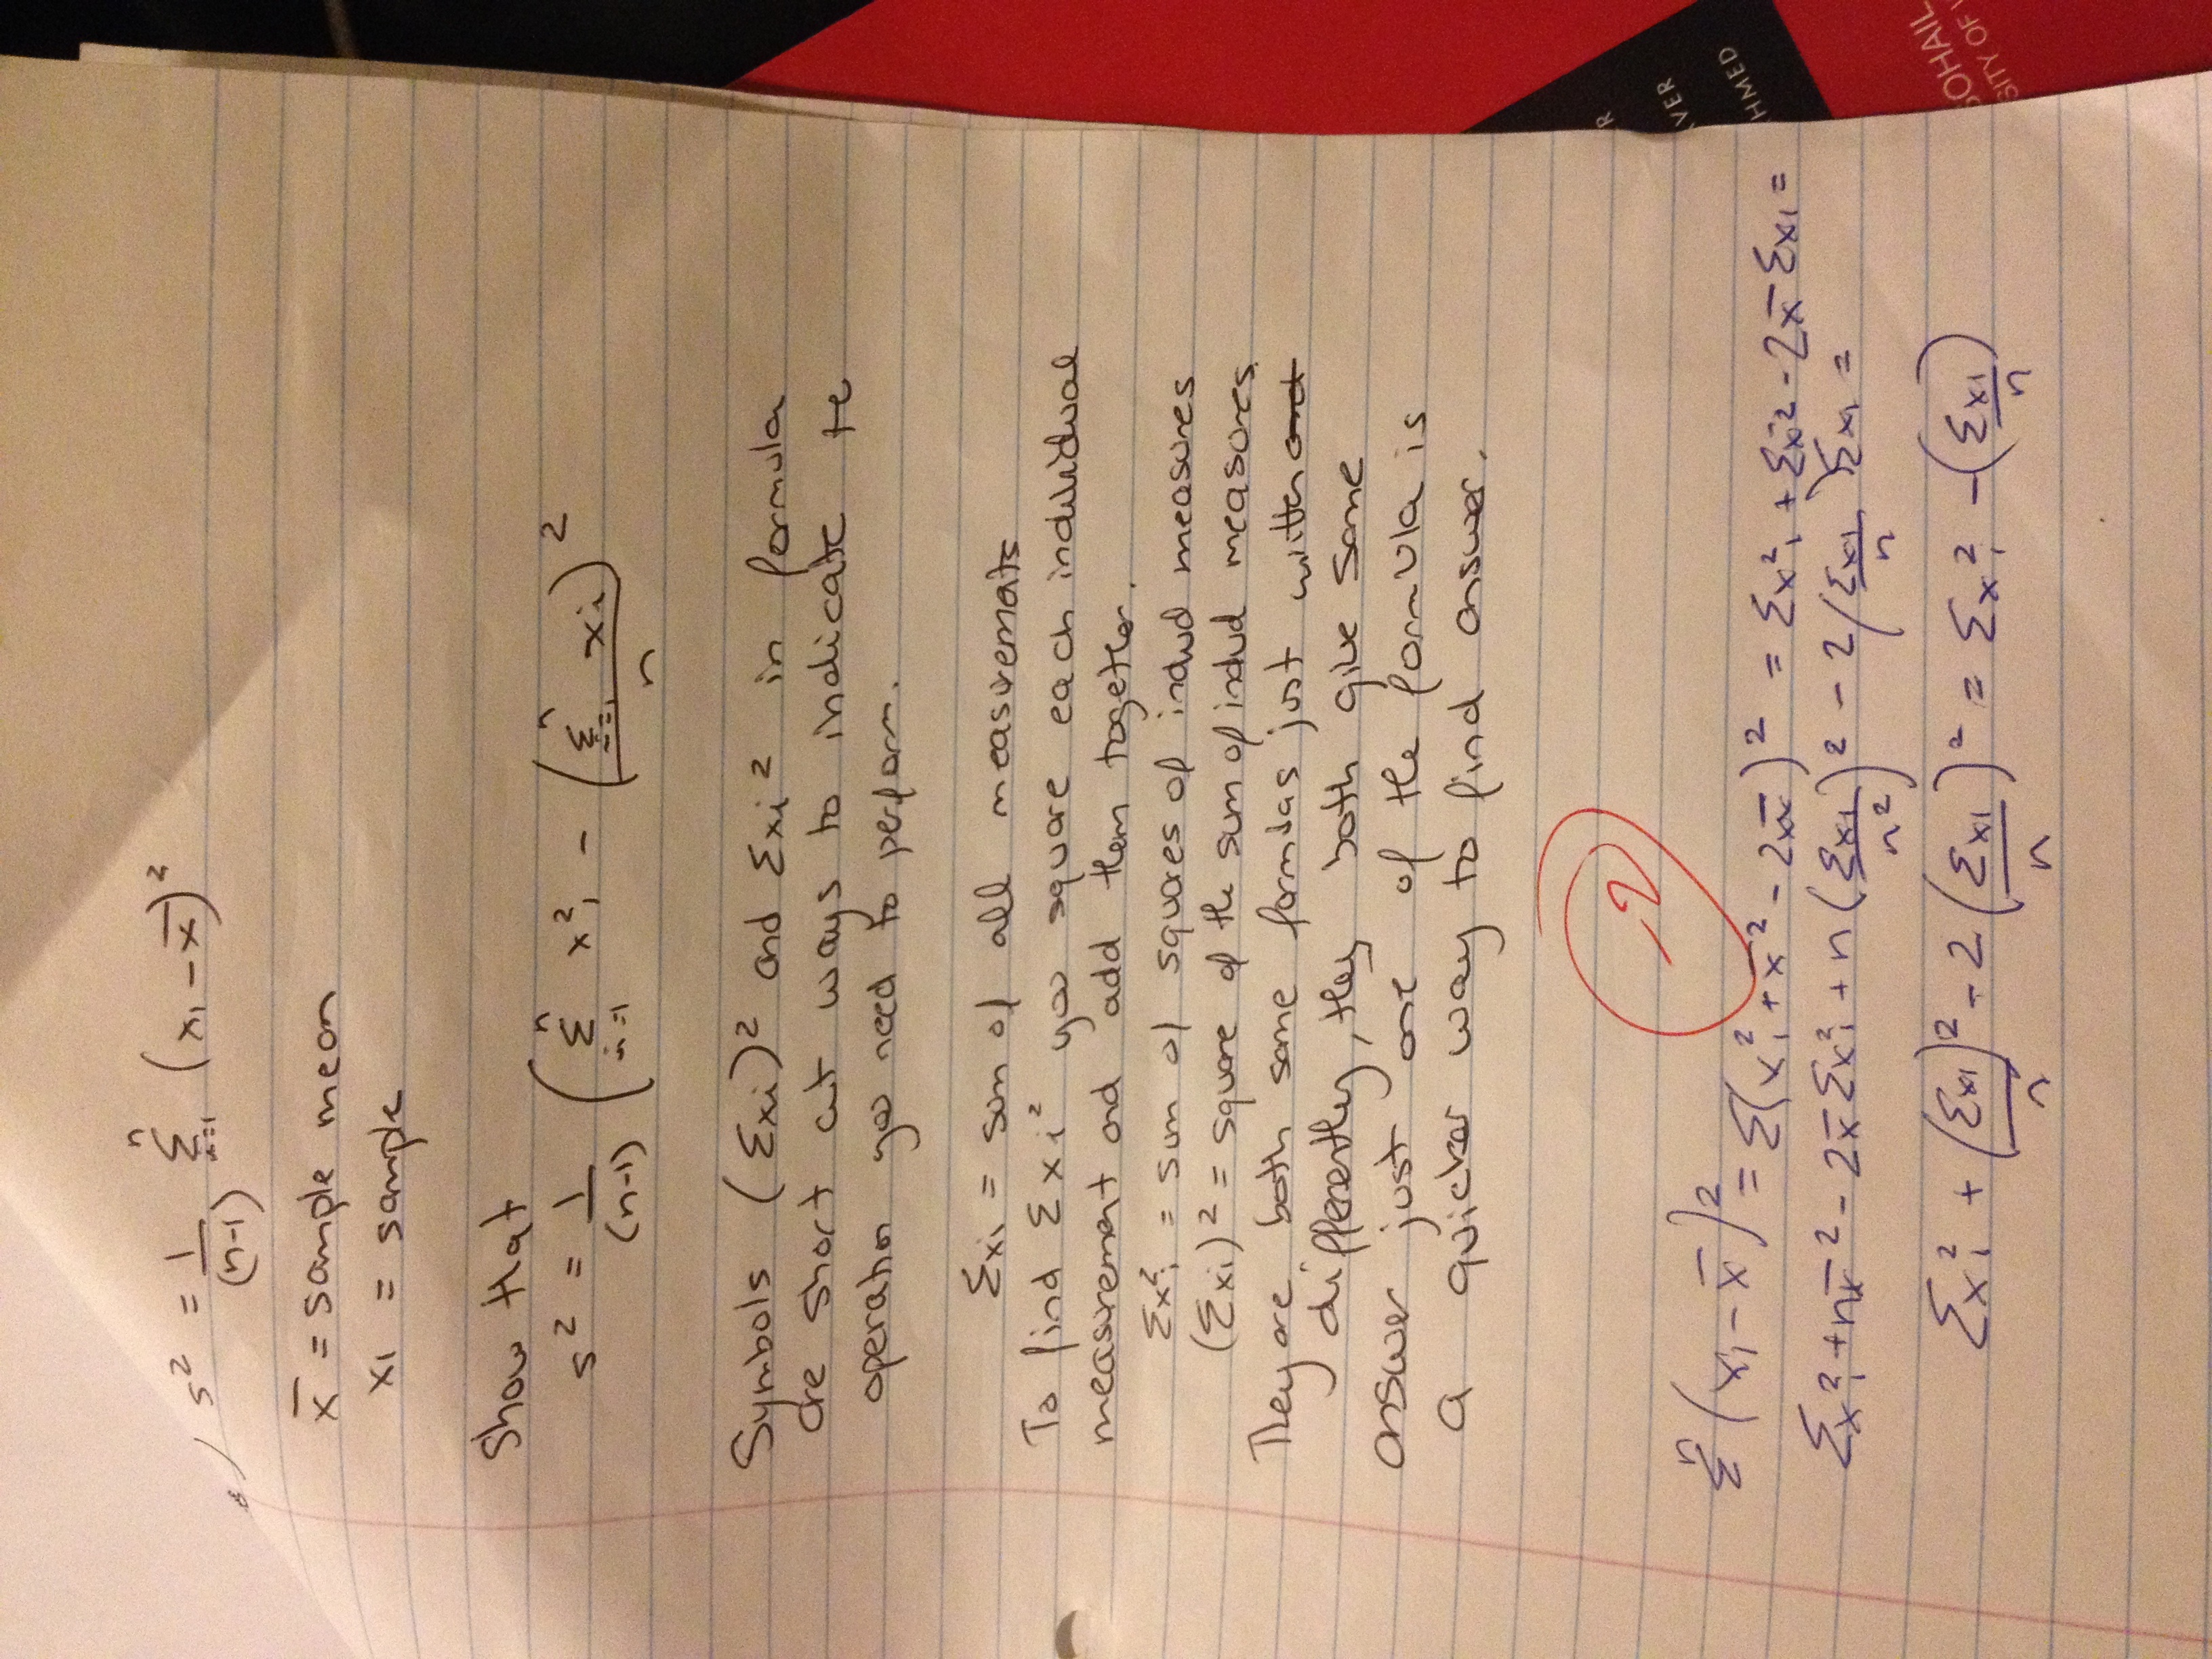 8/ s² = 1/(n-1) Σⁿᵢ₌₁ (x₁ - x̄)²
x̄ = sample mean
x₁ = sample
Show that
s² = 1/(n-1) (Σⁿᵢ₌₁ x²₁ - (Σⁿᵢ₌₁ xi)²/n
Symbols (Σxi)² and Σxi² in formula
are short cut ways to indicate te
operation you need to perform.
Σxi = sum of all measurements
To find Σxi² you square each individual
measurement and add them together.
Σx²ᵢ = sum of squares of indvd measures
(Σxi)² = square of the sum of indvd measures
They are both same formulas just written
differently, they both give same
answer just one of the formula is
a quicker way to find answer.
-2
Σⁿ(x₁ - x̄)² = Σ(x²₁ + x̄² - 2xx̄)² = Σx²₁ + Σx̄² - 2x̄Σx₁ =
Σx²₁ + nx̄² - 2x̄Σx²₁ + n(Σx₁)²/n² - 2(Σx₁/n)Σx₁ =
Σx²₁ + (Σx₁)²/n - 2(Σx₁)²/n = Σx²₁ - (Σx₁)/n
R
VER
HMED
SOHAIL
SITY OF